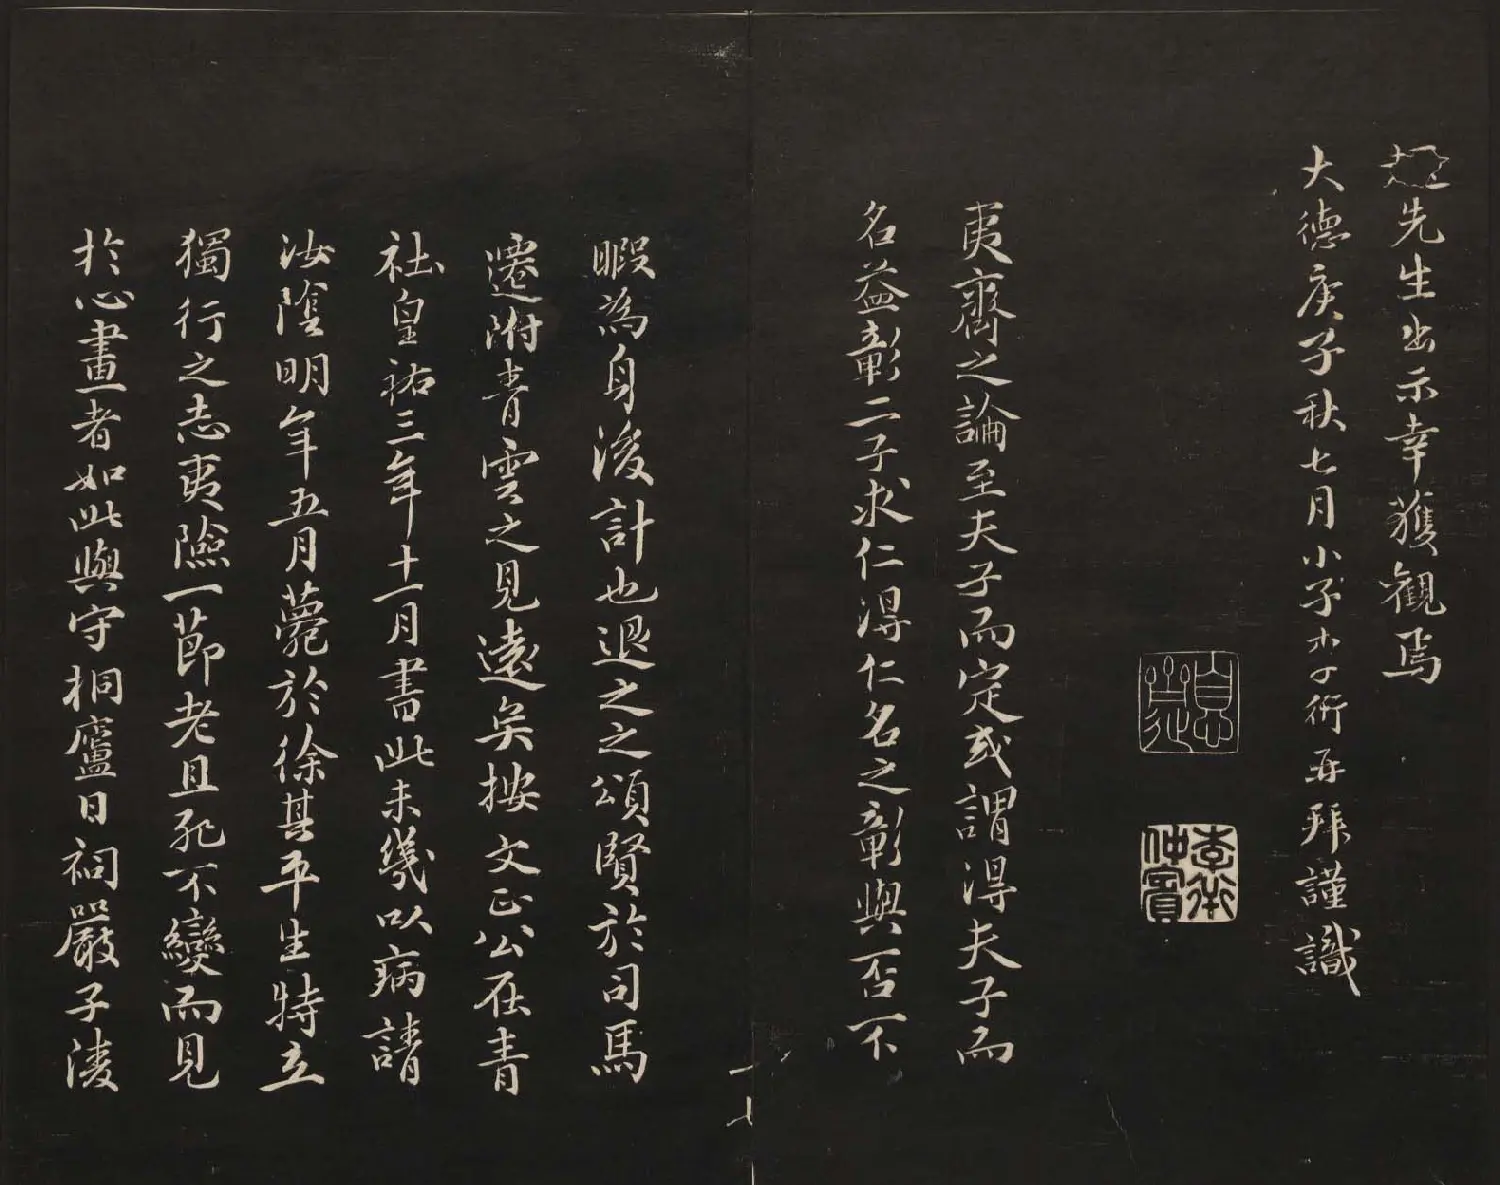 先生出示幸獲觀焉
大德庚子秋七月小子李衎再拜謹識
息齋
李衎
仲賓
夷齊之論至夫子而定或謂得夫子而
名益彰二子求仁得仁名之彰與否不
暇為身後計也退之之頌賢於司馬
遷附青雲之見遠矣按文正公在青
社皇祐三年十一月書此未幾以病請
汝陰明年五月薨於徐其平生特立
獨行之志夷險一節老且死不變而見
於心畫者如此與守桐廬日祠嚴子陵